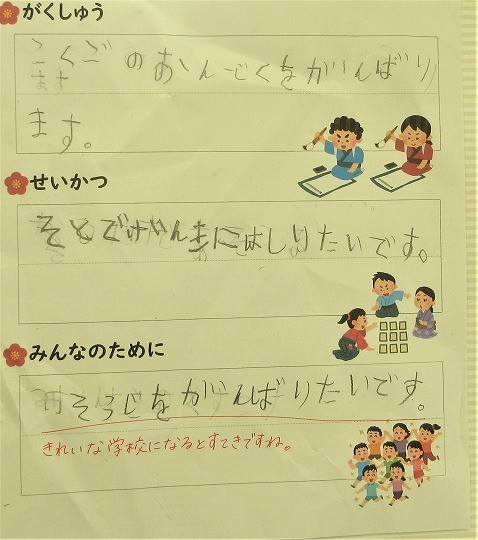 がくしゅう
こくごのおんどくをがんばり
ます。
せいかつ
そとでげんきにはしりたいです。
みんなのために
そうじをがんばりたいです。
きれいな学校になるとすてきですね。